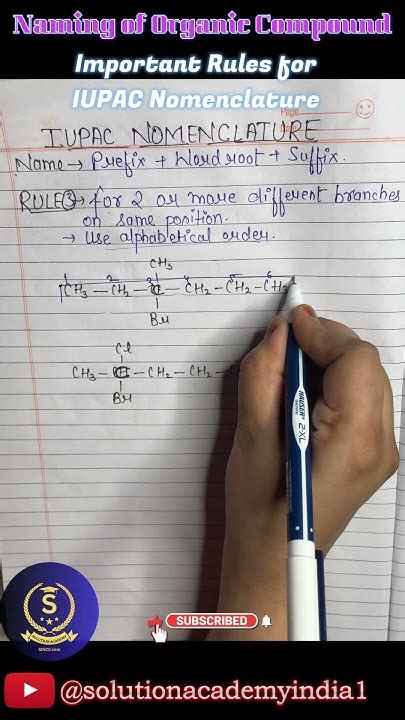 Naming of Organic Compound
Important Rules for
IUPAC Nomenclature
Page
IUPAC NOMENCLATURE
Name → Prefix + Wordroot + Suffix.
RULE ③ → for 2 or more different branches
on same position.
→ Use alphabetical order.
CH₃
1 2 3 4 5 6
CH₃ — CH₂ — C — CH₂ — CH₂ — CH₂
Br
Cl
CH₃ — C — CH₂ — CH₂ —
Br
HAUSER
2-XL
S
SOLUTION ACADEMY
SINCE 2020
SUBSCRIBED
@solutionacademyindia1